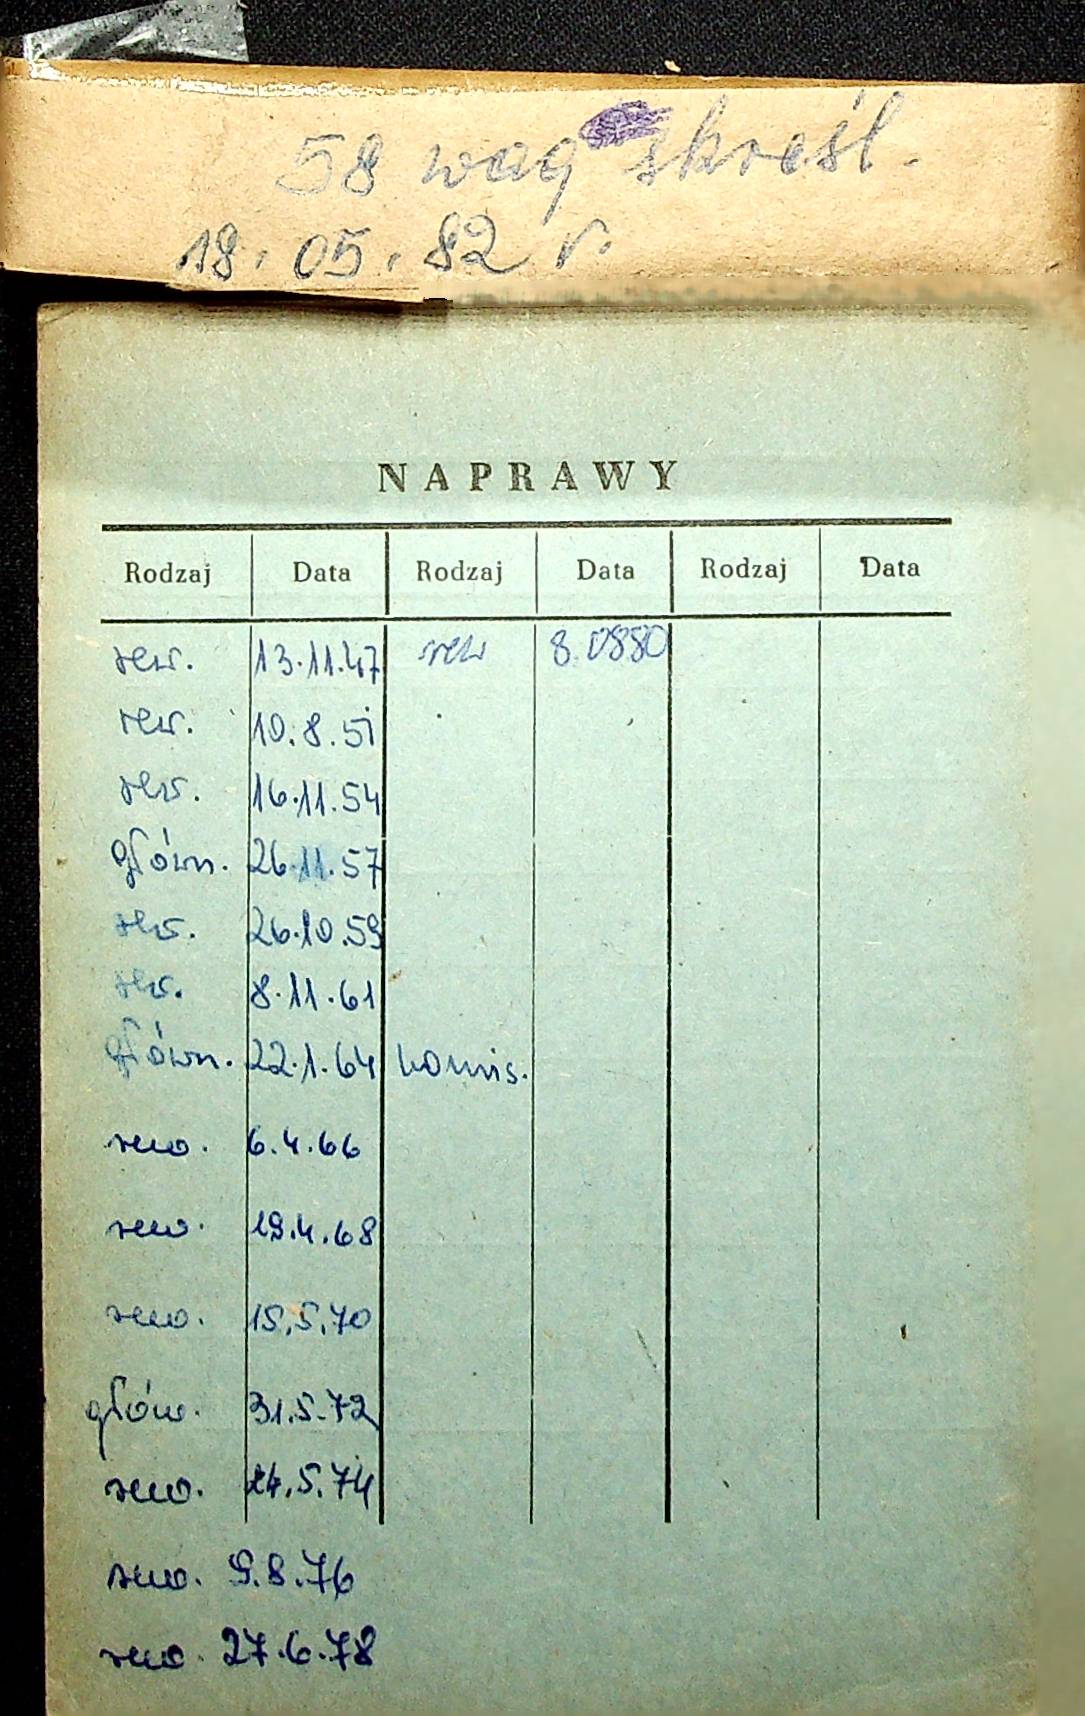 58 wag skreśl.
18.05.82 r.
NAPRAWY
Rodzaj Data Rodzaj Data Rodzaj Data
rew. 13.11.47 rew 8.0880
rew. 10.8.51
rew. 16.11.54
główn. 26.11.57
rew. 26.10.59
rew. 8.11.61
główn. 22.1.64 komis.
rew. 6.4.66
rew. 19.4.68
rew. 15.5.70
głów. 31.5.72
rew. 24.5.74
rew. 9.8.76
rew. 27.6.78